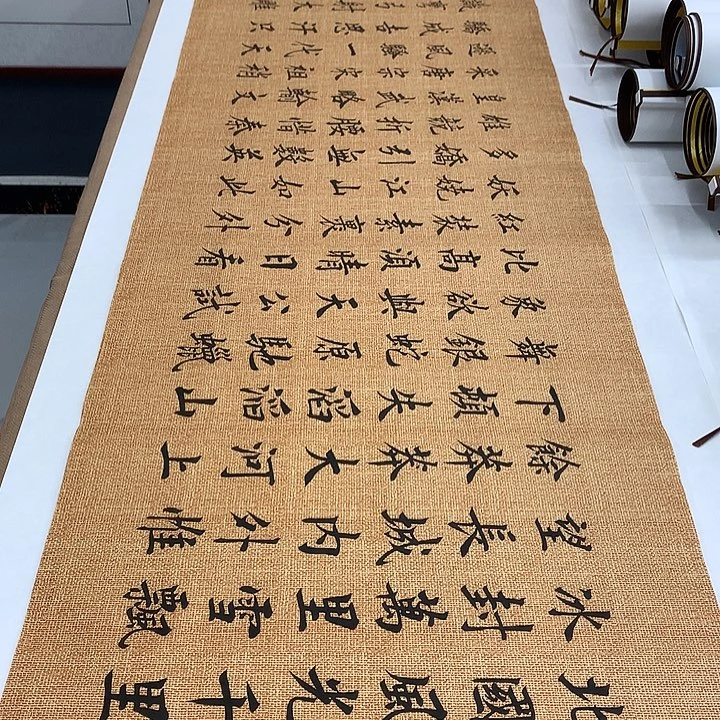 北國風光千里
冰封萬里雪飄
望長城內外惟
餘莽莽大河上
下頓失滔滔山
舞銀蛇原馳蠟
象欲與天公試
比高須晴日看
紅裝素裹分外
妖嬈江山如此
多嬌引無數英
雄競折腰惜秦
皇漢武略輸文
采唐宗宋祖稍
遜風騷一代天
驕成吉思汗只
弓射大